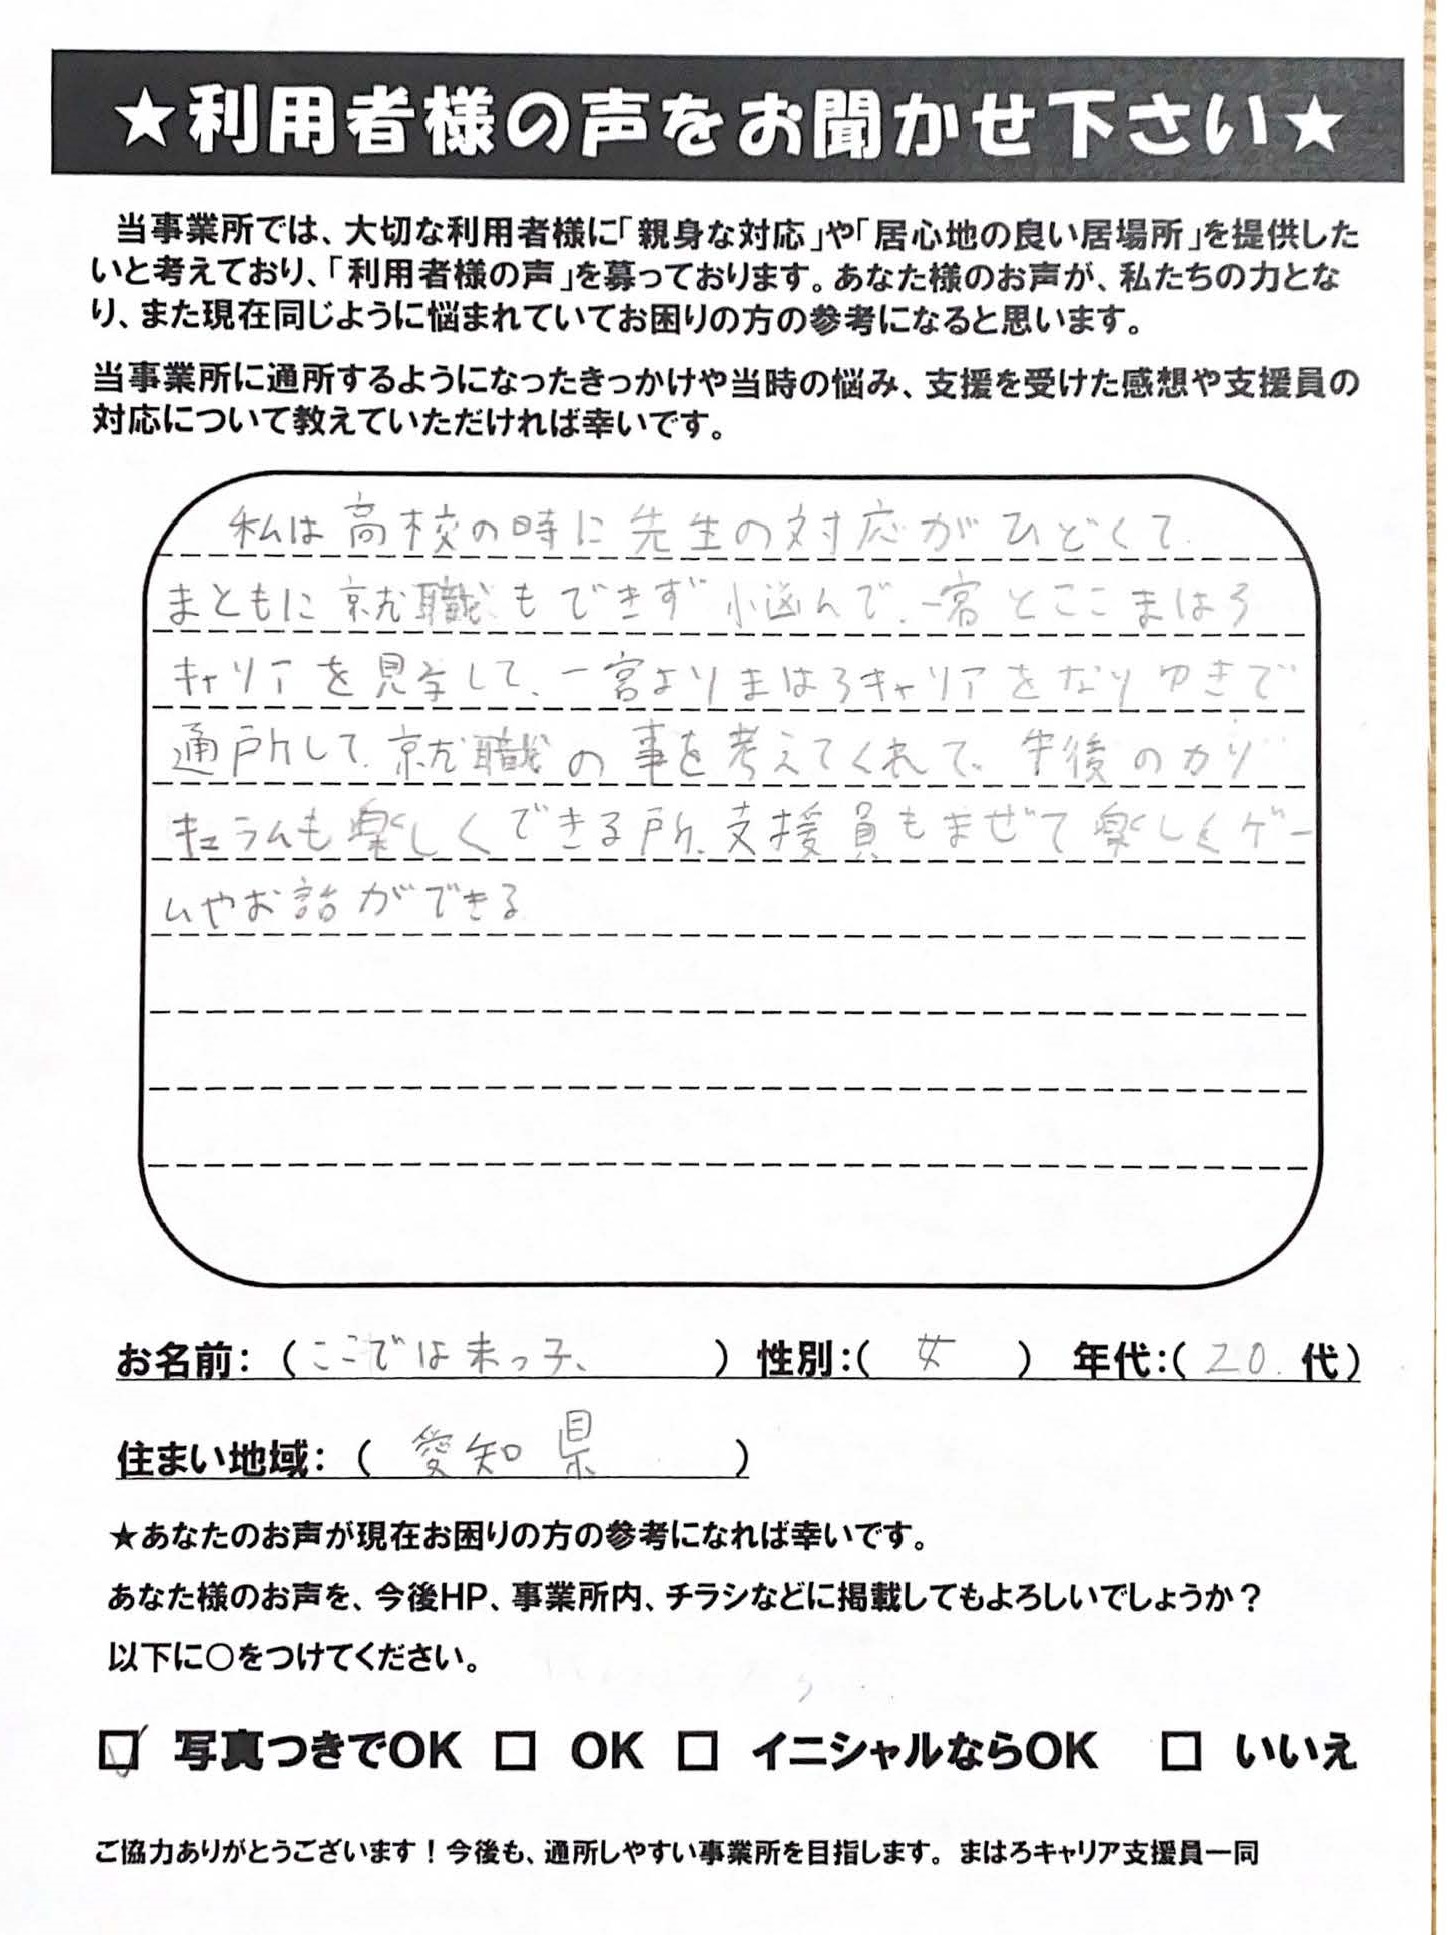 ★利用者様の声をお聞かせ下さい★
当事業所では、大切な利用者様に「親身な対応」や「居心地の良い居場所」を提供した
いと考えており、「利用者様の声」を募っております。あなた様のお声が、私たちの力とな
り、また現在同じように悩まれていてお困りの方の参考になると思います。
当事業所に通所するようになったきっかけや当時の悩み、支援を受けた感想や支援員の
対応について教えていただければ幸いです。
私は高校の時に先生の対応がひどくて
まともに就職もできず悩んで、一宮とここまはろ
キャリアを見学して、一宮よりまはろキャリアをなりゆきで
通所して、就職の事を考えてくれて、午後のカリ
キュラムも楽しくできる所、支援員もまぜて楽しくゲー
ムやお話ができる
お名前：（ここでは末っ子、）性別：（女）年代：（20.代）
住まい地域：（愛知県）
★あなたのお声が現在お困りの方の参考になれば幸いです。
あなた様のお声を、今後HP、事業所内、チラシなどに掲載してもよろしいでしょうか？
以下に○をつけてください。
☑ 写真つきでOK □ OK □ イニシャルならOK □ いいえ
ご協力ありがとうございます！今後も、通所しやすい事業所を目指します。まはろキャリア支援員一同